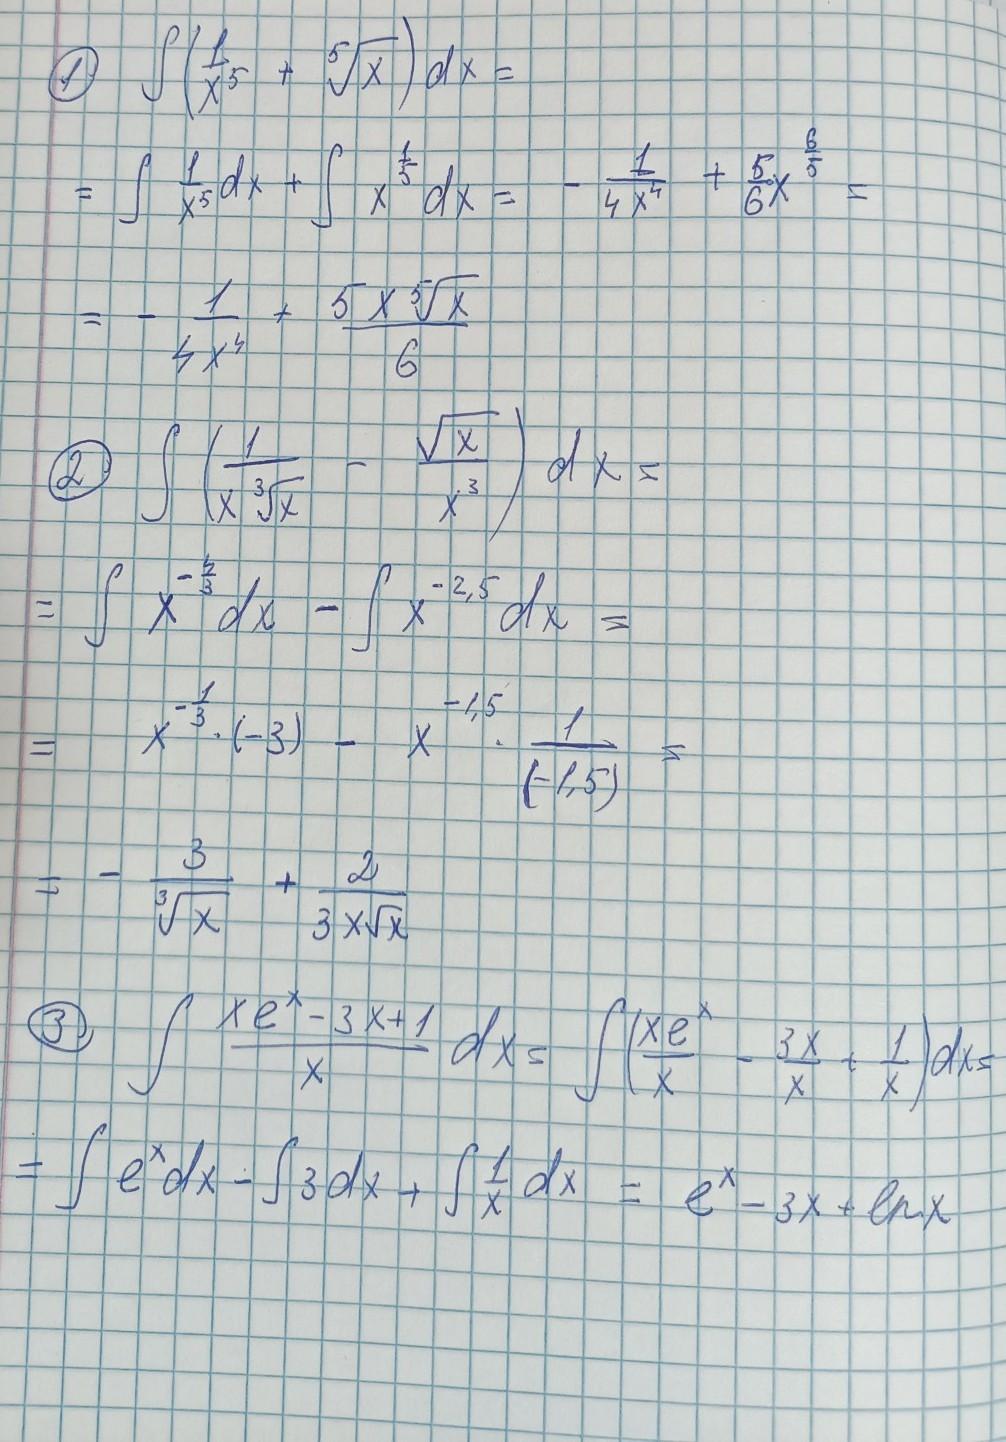 ① ∫(1/x⁵ + ⁵√x) dx =
= ∫ 1/x⁵ dx + ∫ x^(1/5) dx = - 1/(4x⁴) + 5/6 x^(6/5) =
= - 1/(4x⁴) + (5x ⁵√x)/6
② ∫(1/(x ³√x) - √x/x³) dx =
= ∫ x^(-4/3) dx - ∫ x^(-2,5) dx =
= x^(-1/3) · (-3) - x^(-1,5) · 1/(-1,5) =
= - 3/³√x + 2/(3x√x)
③ ∫ (xeˣ - 3x + 1)/x dx = ∫(xeˣ/x - 3x/x + 1/x) dx =
= ∫ eˣ dx - ∫ 3 dx + ∫ 1/x dx = eˣ - 3x + ln x